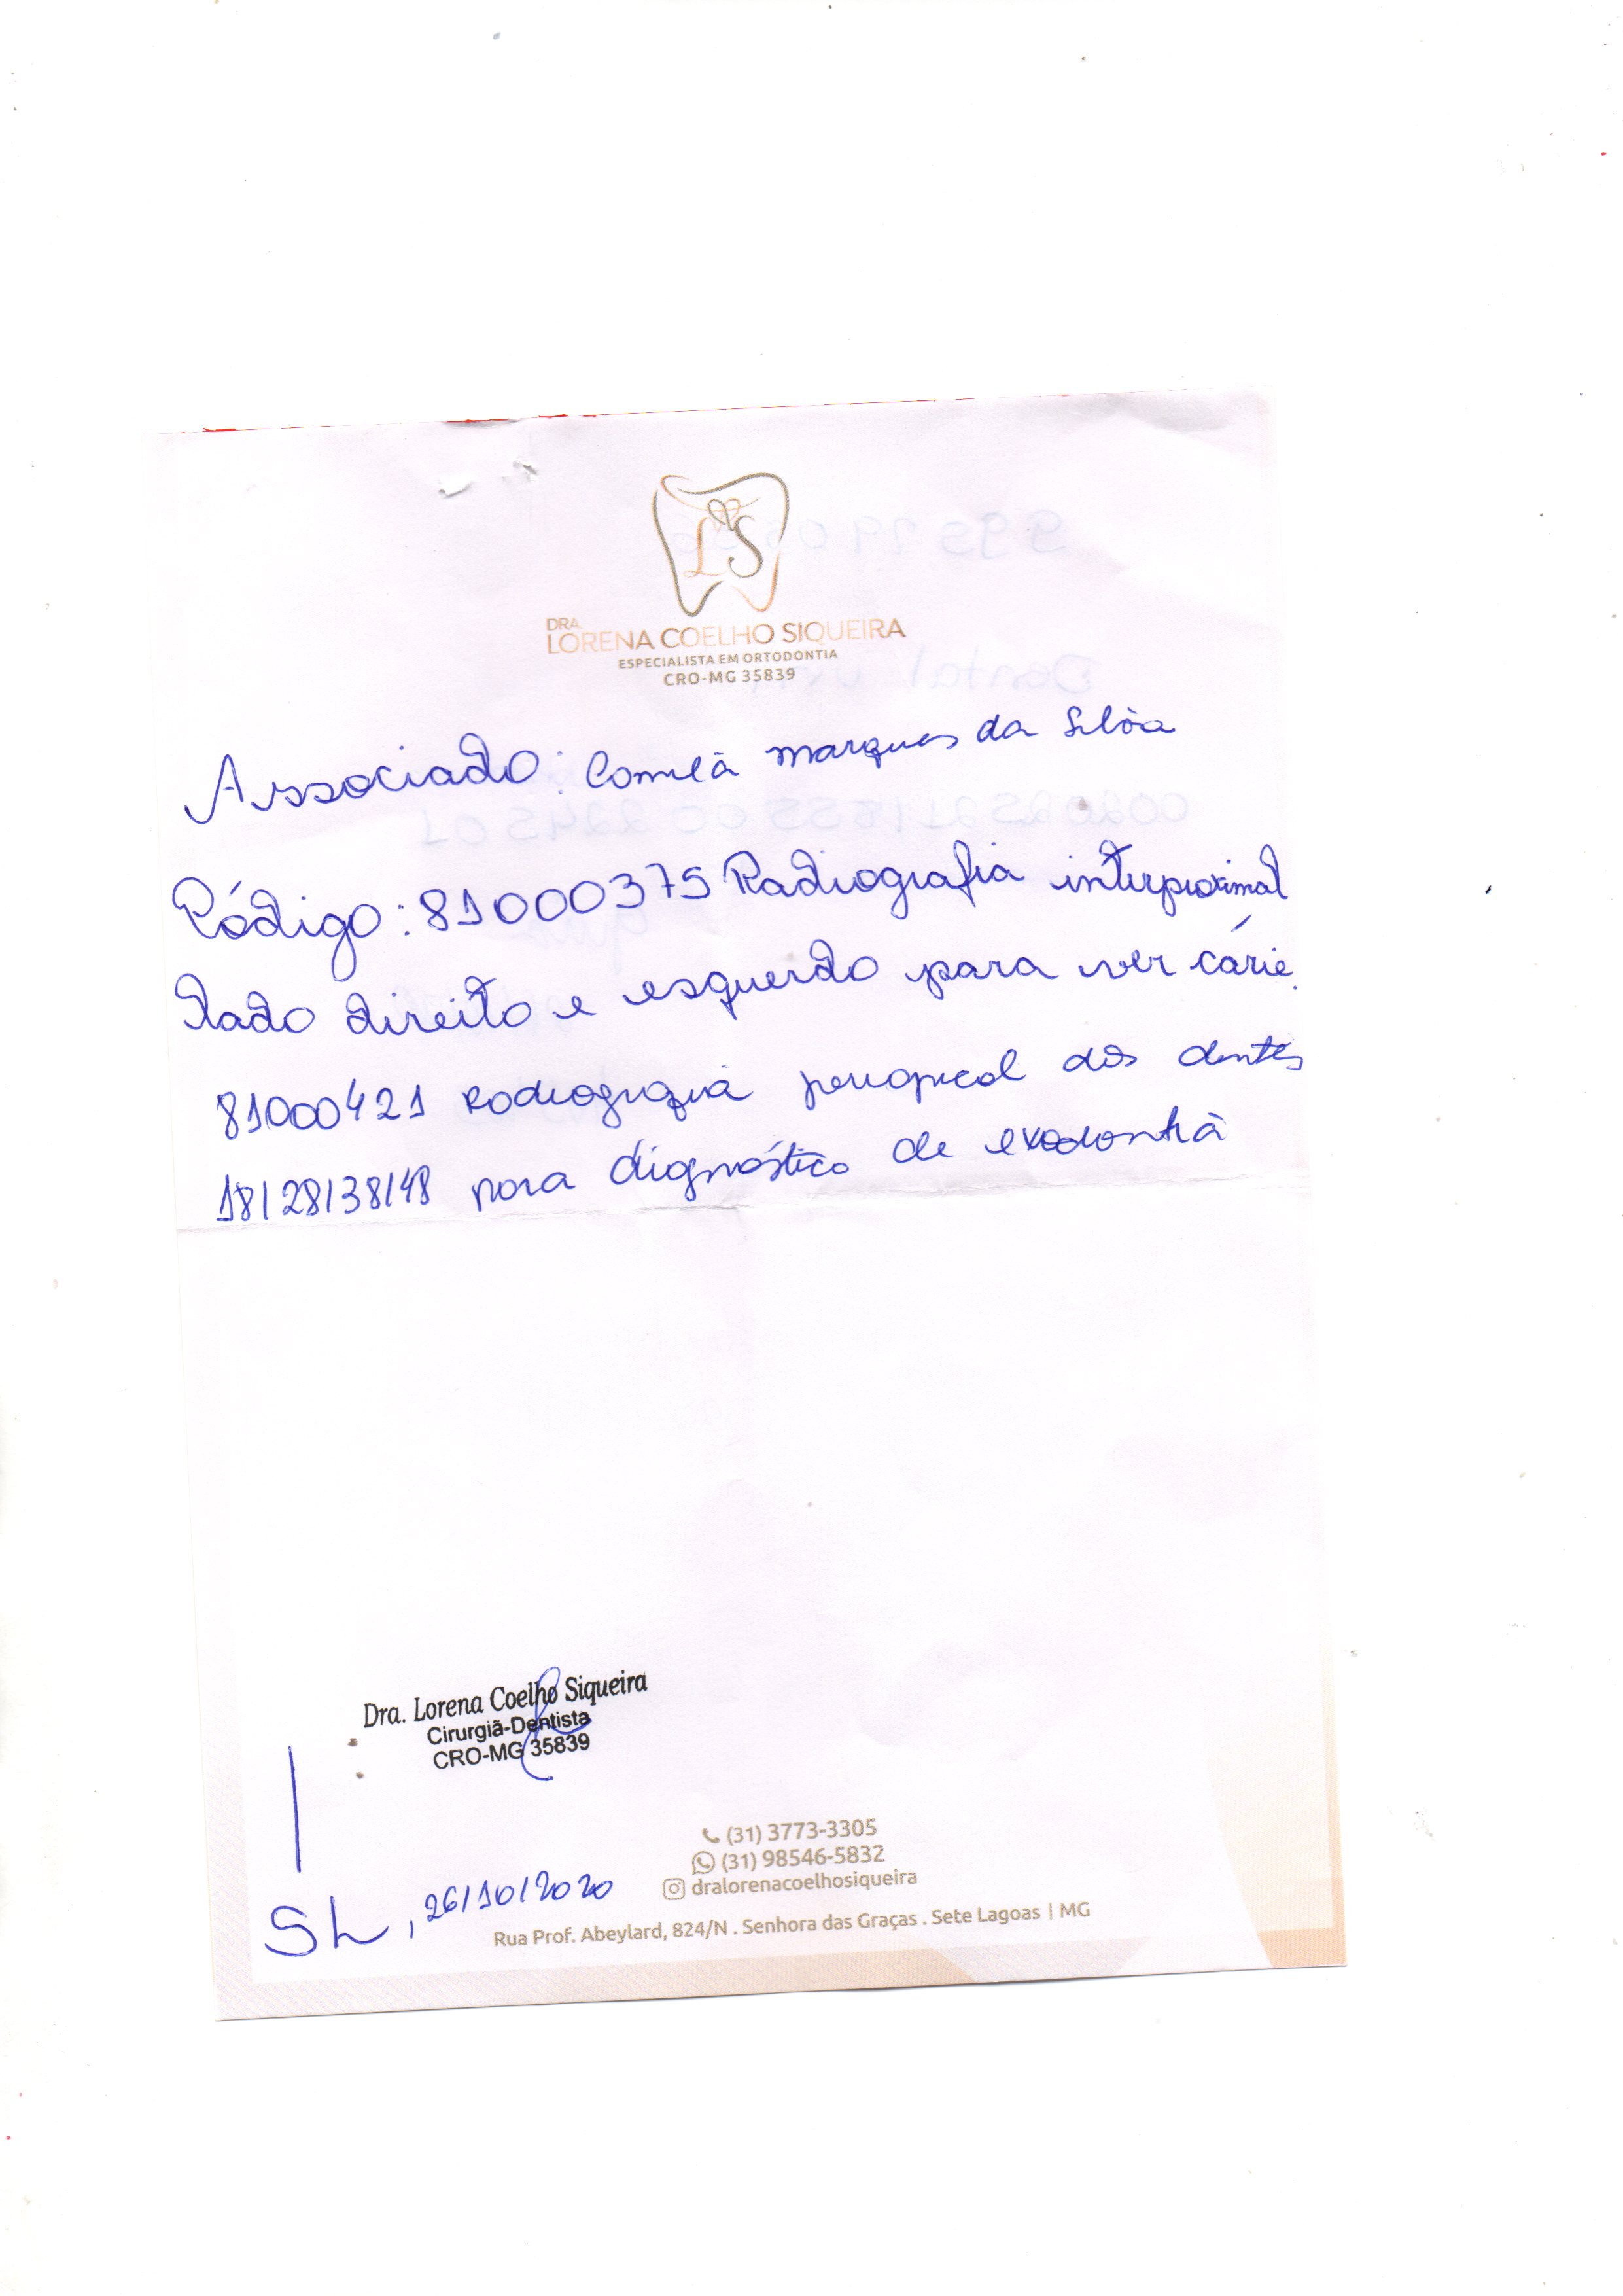 LS
DRA.
LORENA COELHO SIQUEIRA
ESPECIALISTA EM ORTODONTIA
CRO-MG 35839
Associado: Camila Marques da Silva
Código: 81000375 Radiografia interproximal
lado direito e esquerdo para ver cárie.
81000421 Radiografia periapical dos dentes
18/28/38/48 para diagnóstico de exodontia
Dra. Lorena Coelho Siqueira
Cirurgiã-Dentista
CRO-MG 35839
(31) 3773-3305
(31) 98546-5832
dralorenacoelhosiqueira
SL, 26/10/2020
Rua Prof. Abeylard, 824/N . Senhora das Graças . Sete Lagoas | MG